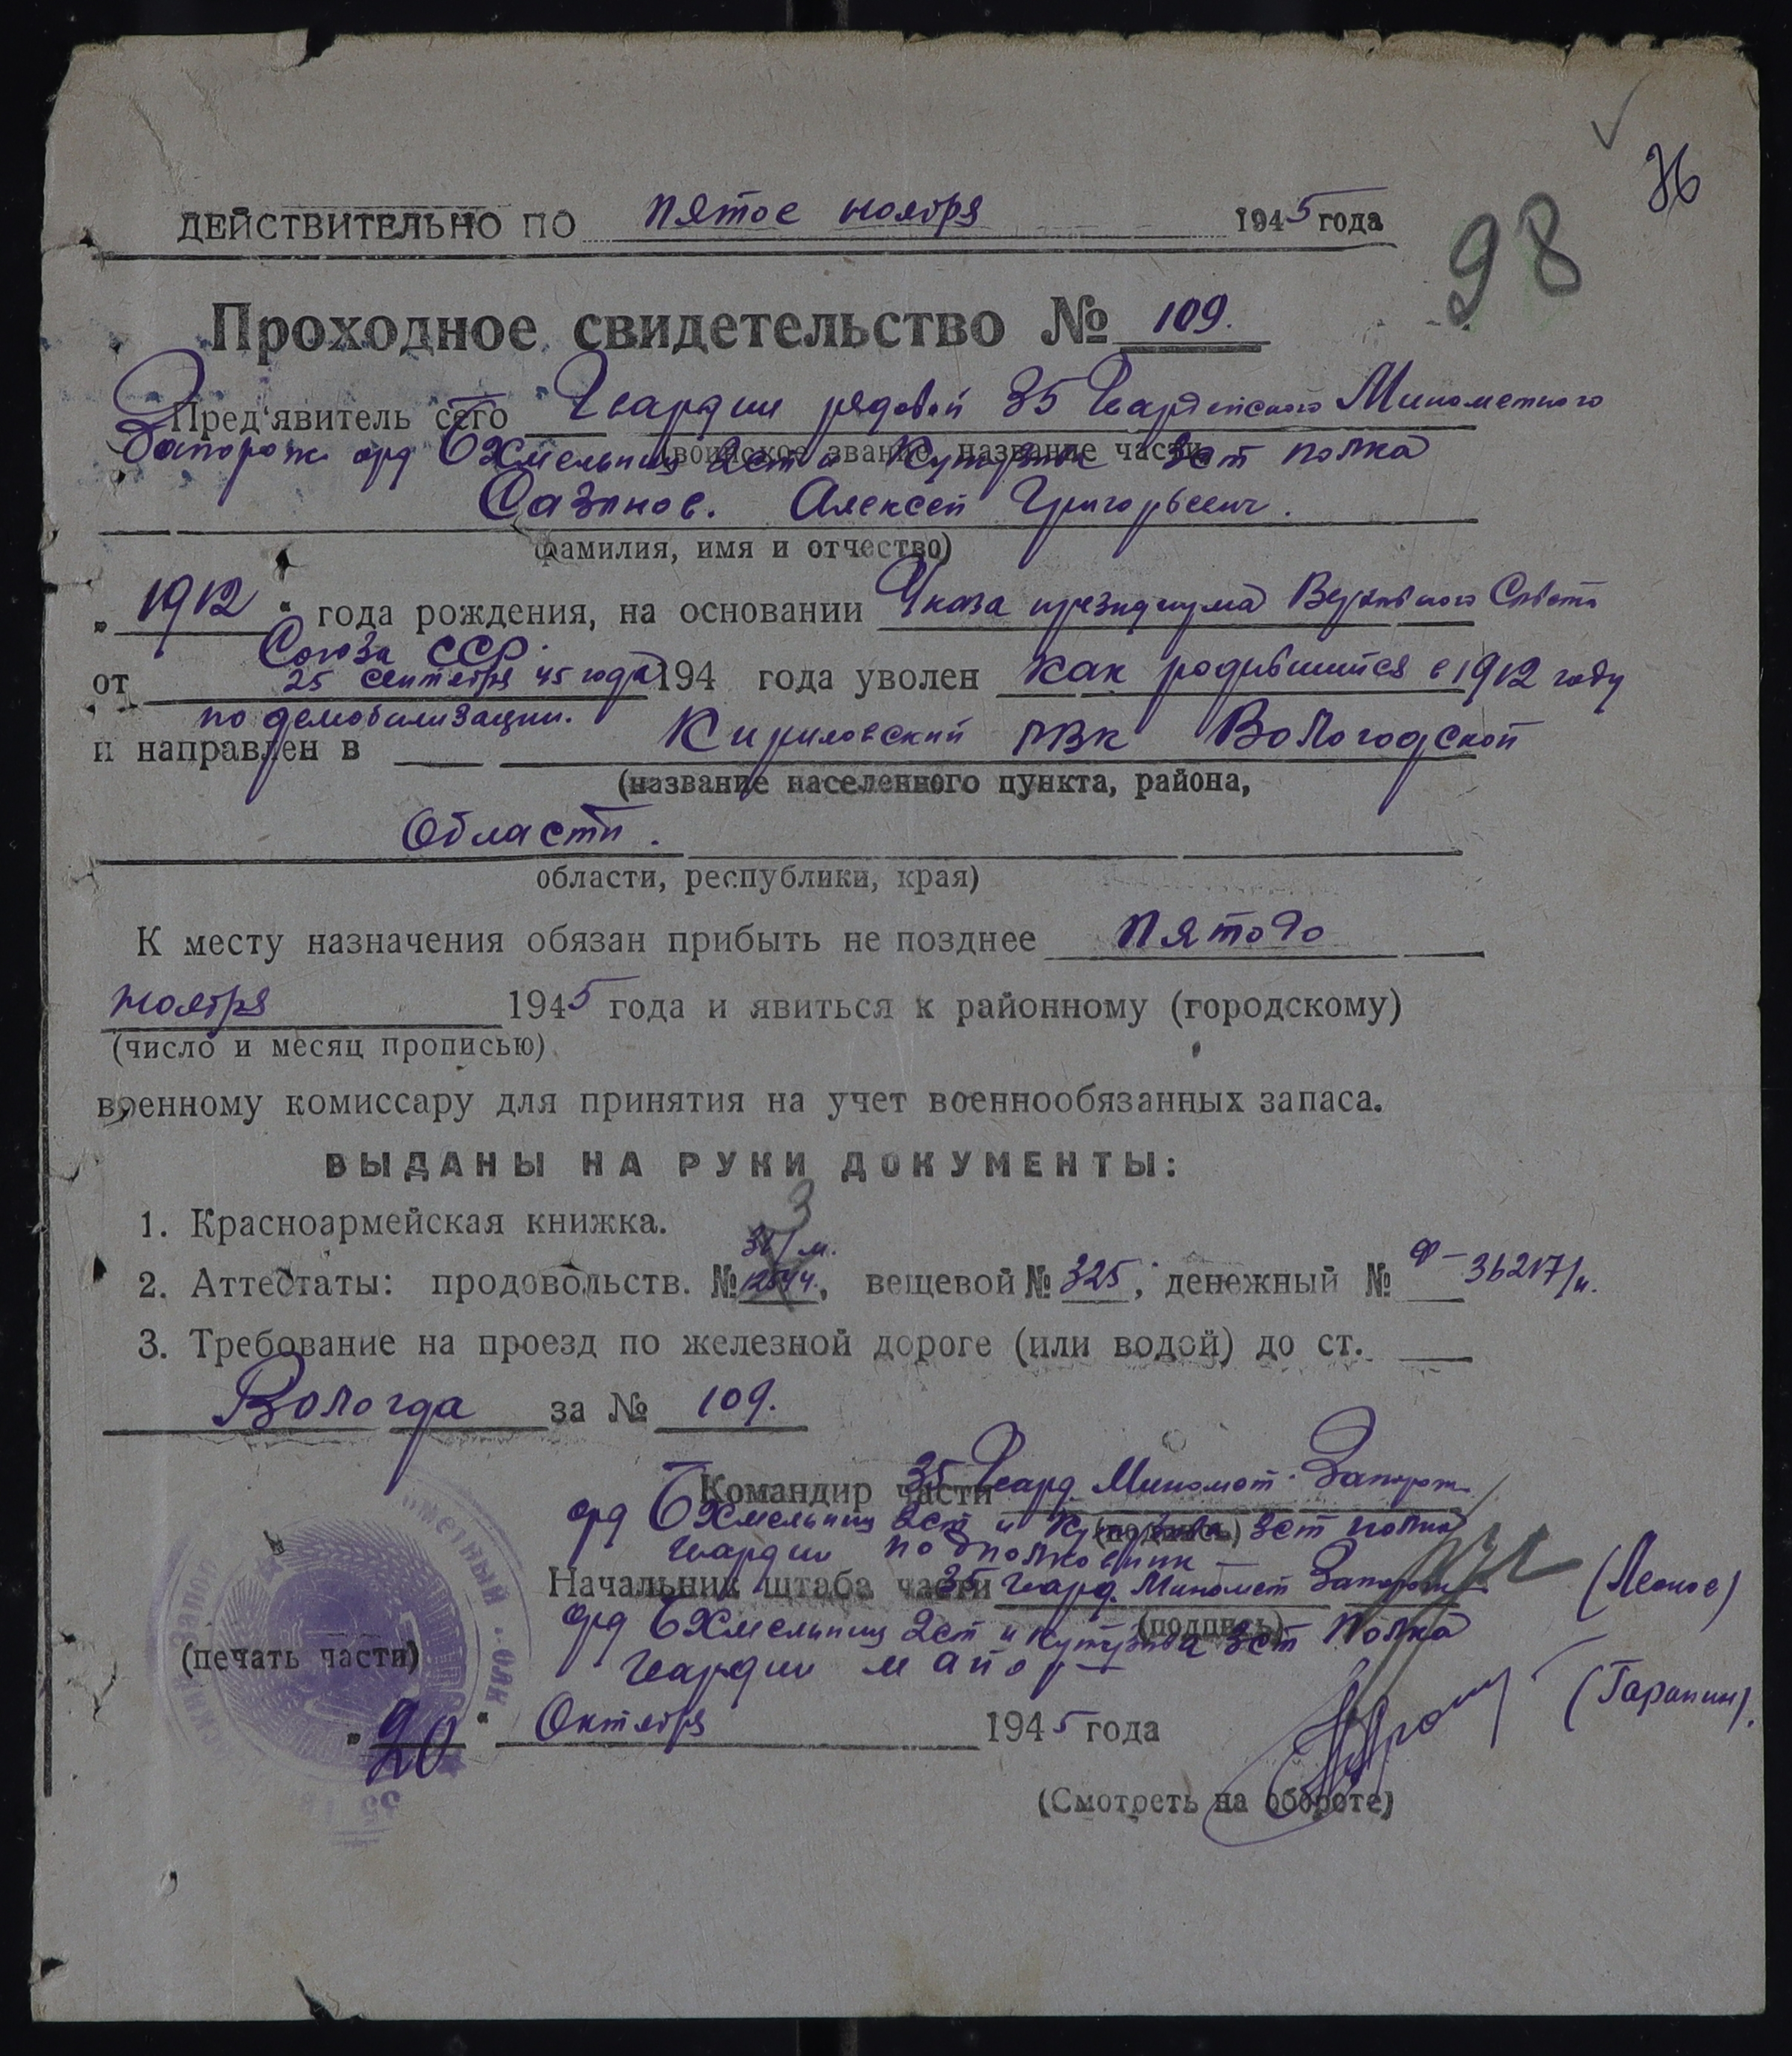 76
98
ДЕЙСТВИТЕЛЬНО ПО пятое ноября 1945 года
Проходное свидетельство № 109.
Пред'явитель сего Гвардии рядовой 35 Гвардейского Минометного
Запорож орд Б Хмельниц 2ст и Кутузова 3ст полка
(воинское звание, название части)
Сазонов. Алексей Григорьевич.
фамилия, имя и отчество)
„1912" года рождения, на основании Указа президиума Верховного Совета
Союза ССР.
от 25 сентября 45 года 194 года уволен как родившийся в 1912 году
по демобилизации.
и направлен в Кириловский РВК Вологодской
(название населенного пункта, района,
Области.
области, республики, края)
К месту назначения обязан прибыть не позднее Пятого
ноября 1945 года и явиться к районному (городскому)
(число и месяц прописью)
военному комиссару для принятия на учет военнообязанных запаса.
ВЫДАНЫ НА РУКИ ДОКУМЕНТЫ:
1. Красноармейская книжка.
2. Аттестаты: продовольств. №, вещевой № 325, денежный № Ф-36217/н.
3. Требование на проезд по железной дороге (или водой) до ст.
Вологда за № 109.
Командир части 35 Гвард. Миномет. Запорож
орд Б Хмельниц 2ст и Кутузова 3ст полка
(подпись)
гвардии подполковник
Начальник штаба части 35 гвард. Миномет Запорож
(подпись)
орд Б Хмельниц 2ст и Кутузова 3ст Полка
гвардии майор
(печать части)
„20" Октября 1945 года
(Смотреть на обороте)